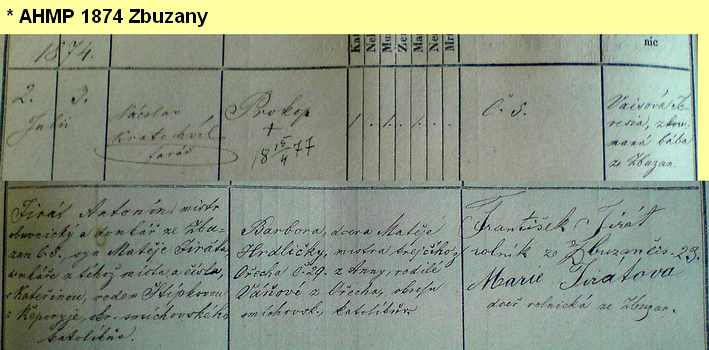 * AHMP 1874 Zbuzany
1874.
Kat
Nel
Mu
Že
Ma
Ne
Mr
nic
2. 3.
Julii
Václav
Kratochvíl
farář
Prokop
+
18 15/4 77
1 . 1 . 1 .
č. 8.
Vaisová Te-
resia, zkou-
maná bába
ze Zbuzan.
Jirát Antonín, mistr
obuvnický a domkář ze Zbu-
zan č 8. syn Matěje Jiráta,
domkáře z téhož místa a čísla,
a Kateřinou, rodem Štípkovou
z Řeporyje, okr. smíchovského
katolické.
Barbora, dcera Matěje
Hrdličky, mistra krejčího z
Ořecha č. 29. z Anny, rodilé
z Ořecha, okresu
smíchovsk. katolička.
František Jirát
rolník ze Zbuzan čís. 23.
Marie Jirátova
dceř rolnická ze Zbuzan.